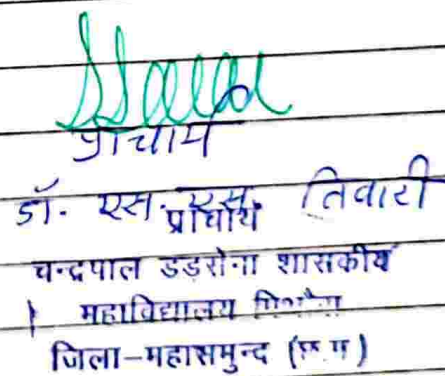 प्राचार्य
डॉ. एस. एस. तिवारी
प्राचार्य
चन्द्रपाल डड़सेना शासकीय
महाविद्यालय
जिला-महासमुन्द (छ.ग)